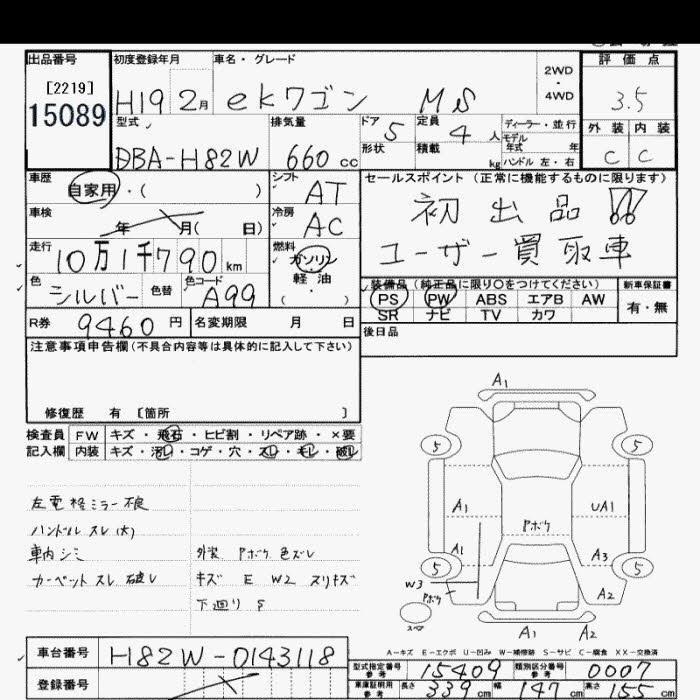 出品番号
[2219]
15089
初度登録年月
H19 2月
車名・グレード
ekワゴン MS
2WD
・
4WD
評価点
3.5
型式
DBA-H82W
排気量
660 cc
ドア
5
定員
4人
形状
積載
kg
ディーラー・並行
モデル
年式 年
ハンドル 左・右
外装 内装
C C
車歴
自家用・( )
シフト
AT
車検
年 月( 日)
冷房
AC
走行
10万1千790km
燃料
ガソリン
軽油
( )
色
シルバー
色替
色コード
A99
セールスポイント (正常に機能するものに限ります)
初出品!!
ユーザー買取車
装備品(純正品に限り○をつけてください)
PS PW ABS エアB AW
SR ナビ TV カワ
新車保証書
有・無
R券
9460円
名変期限 月 日
後日品
注意事項申告欄(不具合内容等は具体的に記入して下さい)
修復歴 有 [箇所 ]
検査員 FW キズ・飛石・ヒビ割・リペア跡・×要
記入欄 内装 キズ・汚レ・コゲ・穴・スレ・モレ・破レ
左電格ミラー不良
ハンドル スレ(大)
車内シミ
カーペット スレ 破レ
外装 Pボケ 色ズレ
キズ E W2 スリキズ
下廻り S
A1
5 5
A1 UA1
Pボケ
A1 A3
5 5
W3
Pボケ
A2
スペア
A1 A2
A-キズ E-エクボ U-凹み W-補修跡 S-サビ C-腐食 XX-交換済
車台番号
H82W-0143118
登録番号
型式指定番号
参考
15409
類別区分番号
参考
0007
車庫証明用
参考
長さ 339cm 幅 147cm 高さ 155cm